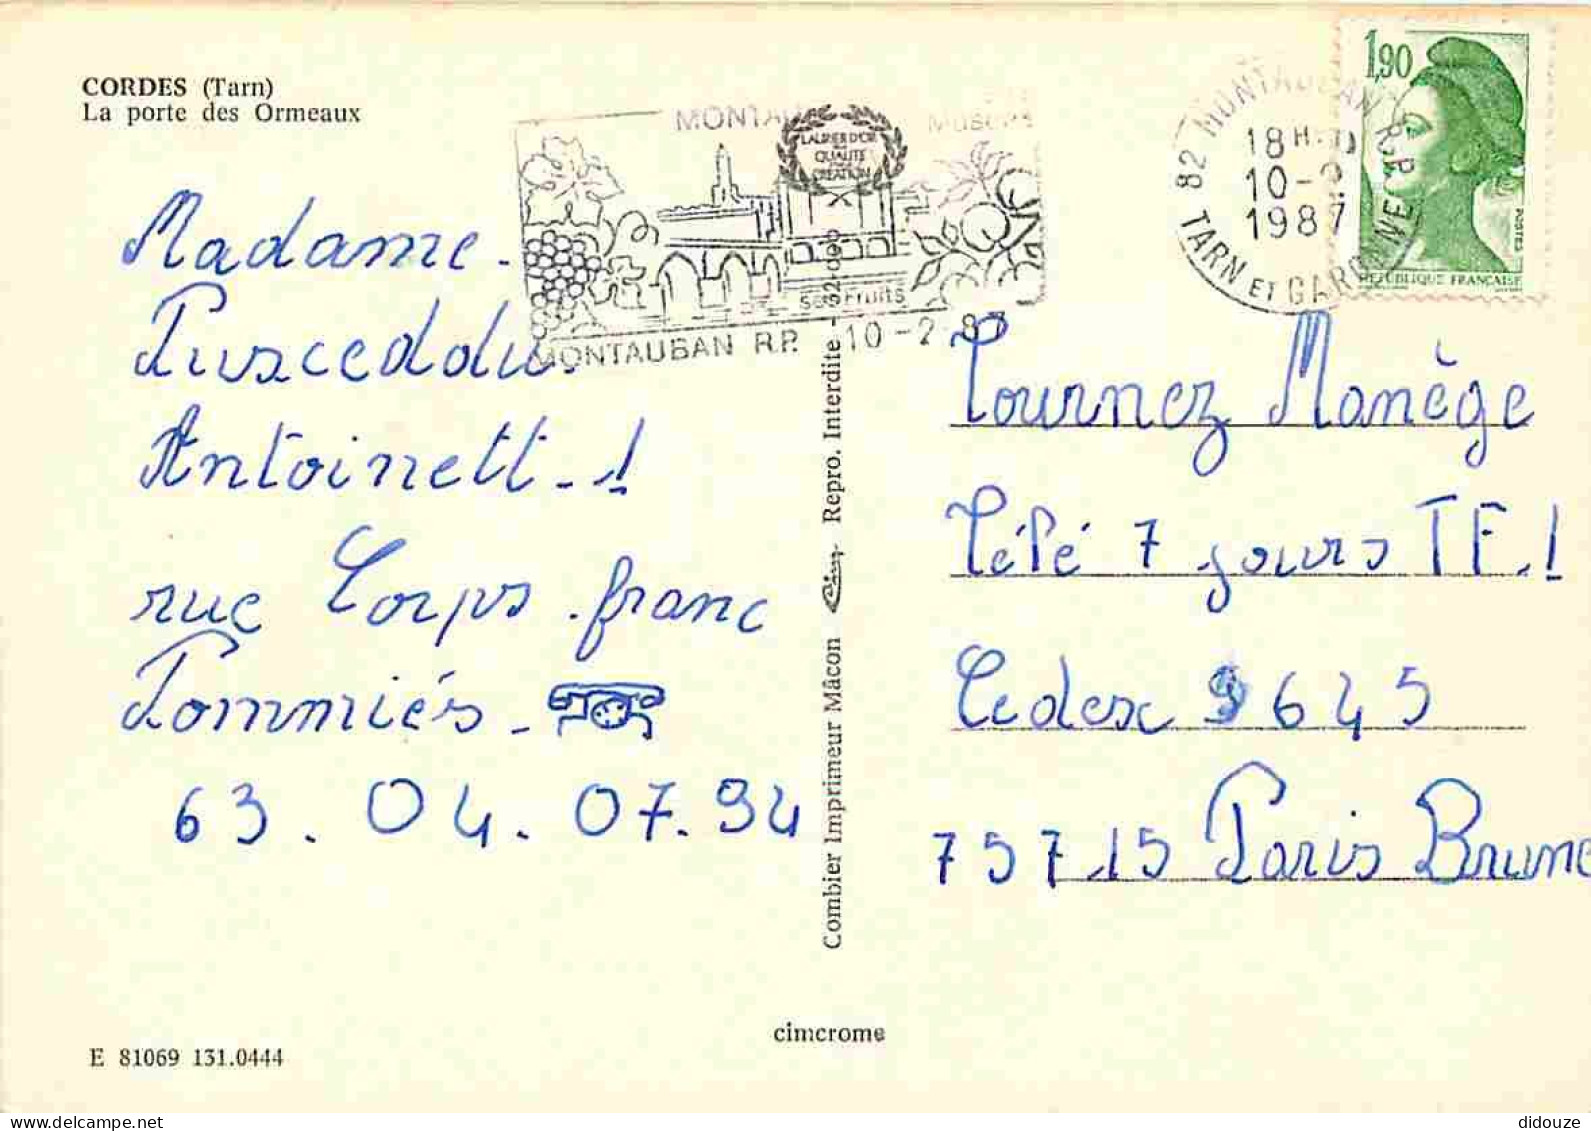 CORDES (Tarn)
La porte des Ormeaux
MONTAU
Musées
LAURIER D'OR
QUALITE
CREATION
ses Fruits
MONTAUBAN R.P. 10-2-87
82 MONTAUBAN R.P.
18H
10-2
1987
TARN ET GARONNE
1,90
POSTES
REPUBLIQUE FRANCAISE
Madame.
Pusceddu.
Antoinett-!
rue Corps.franc
Pommiés-
63.04.07.94
Combier Imprimeur Mâcon Cim Repro. Interdite - 82-000
Tournez Manège
Télé 7 jours TF.!
Cedex 9645
75715 Paris Brune
cimcrome
E 81069 131.0444
didouze